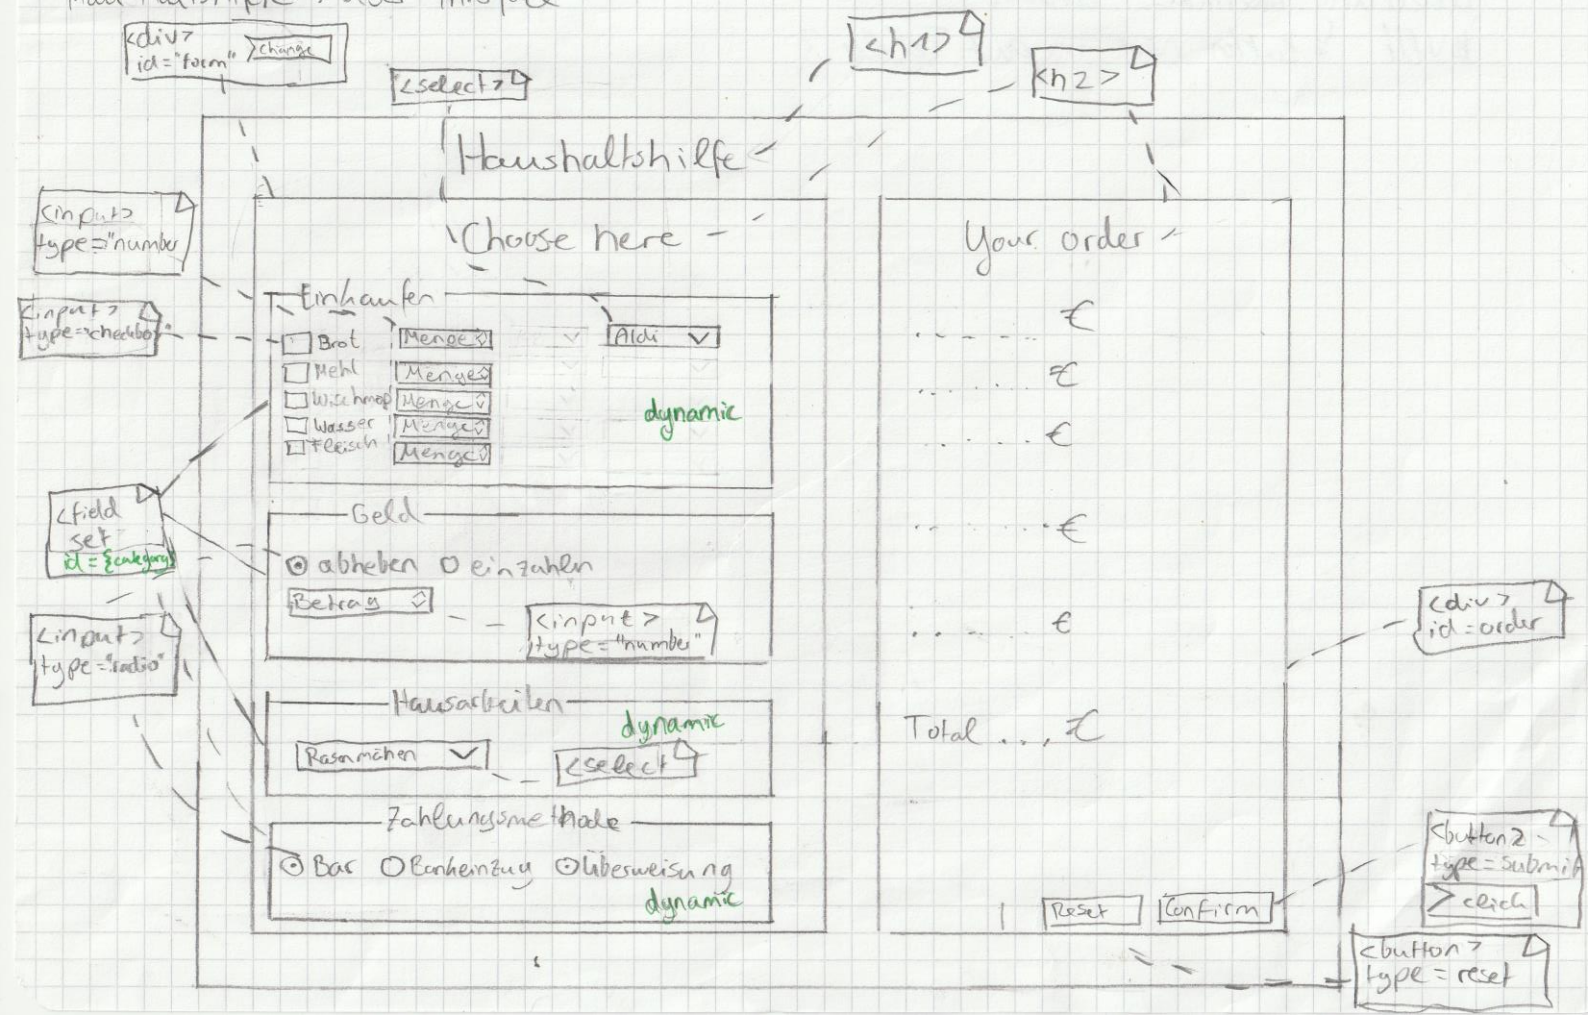 <div>
id="form" change
<select>
<h1>
<h2>
Haushaltshilfe
<input>
type="number
Choose here
Your order
<input>
type="checkbox"
Einkaufen
Brot Menge Aldi
Mehl Menge
Wischmop Menge
Wasser Menge
Fleisch Menge
dynamic
€
€
€
€
€
<field
set
id={category}
Geld
abheben einzahlen
Betrag
<input>
type="number"
<input>
type="radio"
<div>
id=order
Hausarbeiten
dynamic
Rasenmähen
<select
Total ... €
Zahlungsmethode
Bar Bankeinzug Überweisung
dynamic
Reset Confirm
<button>
type=submit
click
<button>
type=reset